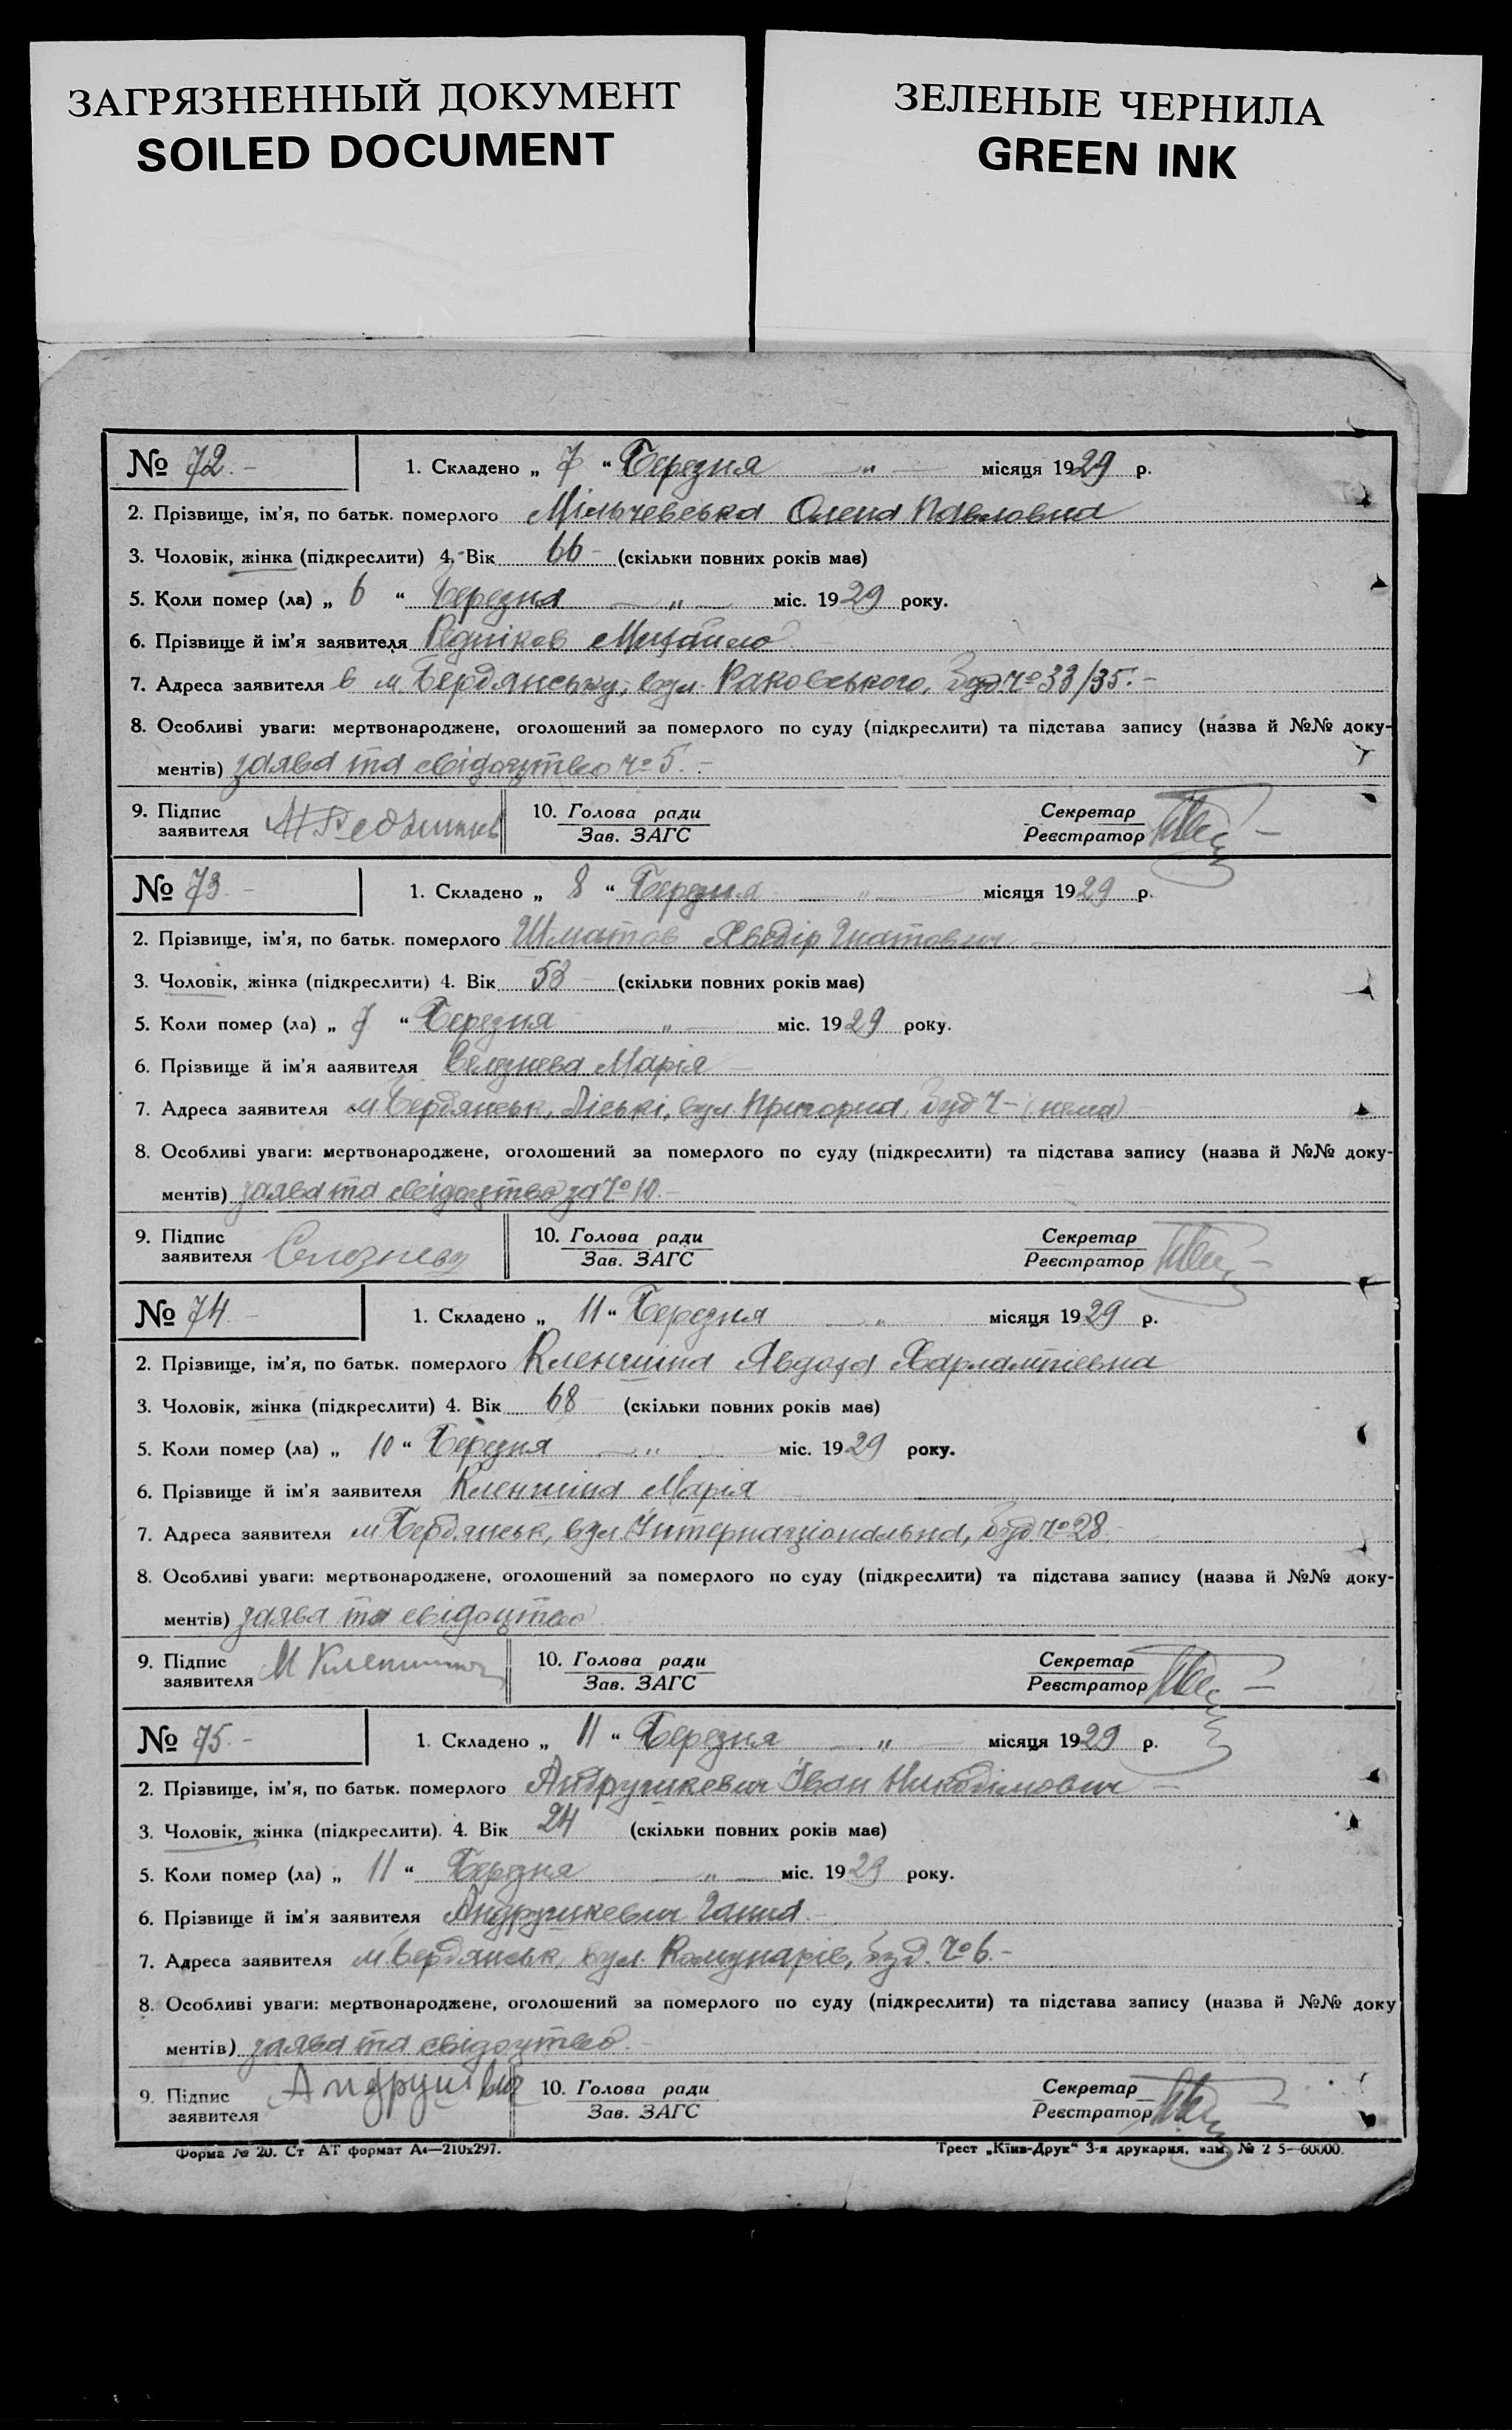 ЗАГРЯЗНЕННЫЙ ДОКУМЕНТ
SOILED DOCUMENT
ЗЕЛЕНЫЕ ЧЕРНИЛА
GREEN INK
№ 72. – 1. Складено „ 7 “ Березня — „ — місяця 1929 р.
2. Прізвище, ім’я, по батьк. померлого Мільчевська Олена Павловна
3. Чоловік, жінка (підкреслити) 4. Вік 66 – (скільки повних років має)
5. Коли помер (ла) „ 6 “ Березня — „ — міс. 1929 року.
6. Прізвище й ім’я заявителя Редніков Михайло
7. Адреса заявителя в м. Бердянську, вул. Раковського, Буд. № 33/35. –
8. Особливі уваги: мертвонароджене, оголошений за померлого по суду (підкреслити) та підстава запису (назва й №№ доку-
ментів) заява та свідоцтво № 5. –
9. Підпис заявителя 10. Голова ради Секретар
Зав. ЗАГС Реєстратор
№ 73. – 1. Складено „ 8 “ Березня — „ — місяця 1929 р.
2. Прізвище, ім’я, по батьк. померлого Шматов Хведір Гнатович —
3. Чоловік, жінка (підкреслити) 4. Вік 53 – (скільки повних років має)
5. Коли помер (ла) „ 7 “ Березня — „ — міс. 1929 року.
6. Прізвище й ім’я заявителя Селезнева Марія –
7. Адреса заявителя м. Бердянськ, Ліські, вул. Пригорна, Буд. № – (нема)
8. Особливі уваги: мертвонароджене, оголошений за померлого по суду (підкреслити) та підстава запису (назва й №№ доку-
ментів) заява та свідоцтво за № 10. –
9. Підпис заявителя 10. Голова ради Секретар
Зав. ЗАГС Реєстратор
№ 74. – 1. Складено „ 11 “ Березня — „ місяця 1929 р.
2. Прізвище, ім’я, по батьк. померлого Кленшіна Явдоха Харлампіевна
3. Чоловік, жінка (підкреслити) 4. Вік 68 – (скільки повних років має)
5. Коли помер (ла) „ 10 “ Березня — „ міс. 1929 року.
6. Прізвище й ім’я заявителя Кленшіна Марія
7. Адреса заявителя м. Бердянськ, вул. Інтернаціональна, буд. № 28.
8. Особливі уваги: мертвонароджене, оголошений за померлого по суду (підкреслити) та підстава запису (назва й №№ доку-
ментів) заява та свідоцтво
9. Підпис заявителя 10. Голова ради Секретар
Зав. ЗАГС Реєстратор
№ 75. – 1. Складено „ 11 “ Березня — „ — місяця 1929 р.
2. Прізвище, ім’я, по батьк. померлого Андрушкевич Іван Никодімович –
3. Чоловік, жінка (підкреслити). 4. Вік 24 (скільки повних років має)
5. Коли помер (ла) „ 11 “ Березня — „ — міс. 1929 року.
6. Прізвище й ім’я заявителя Андрушкевич Ганна –
7. Адреса заявителя м. Бердянськ, вул. Комунарів, буд. № 6. –
8. Особливі уваги: мертвонароджене, оголошений за померлого по суду (підкреслити) та підстава запису (назва й №№ доку
ментів) заява та свідоцтво. –
9. Підпис заявителя 10. Голова ради Секретар
Зав. ЗАГС Реєстратор
Форма № 20. Ст АТ формат А4—210х297. Трест „Київ-Друк“ 3-я друкарня, зам. № 2 5—60000.